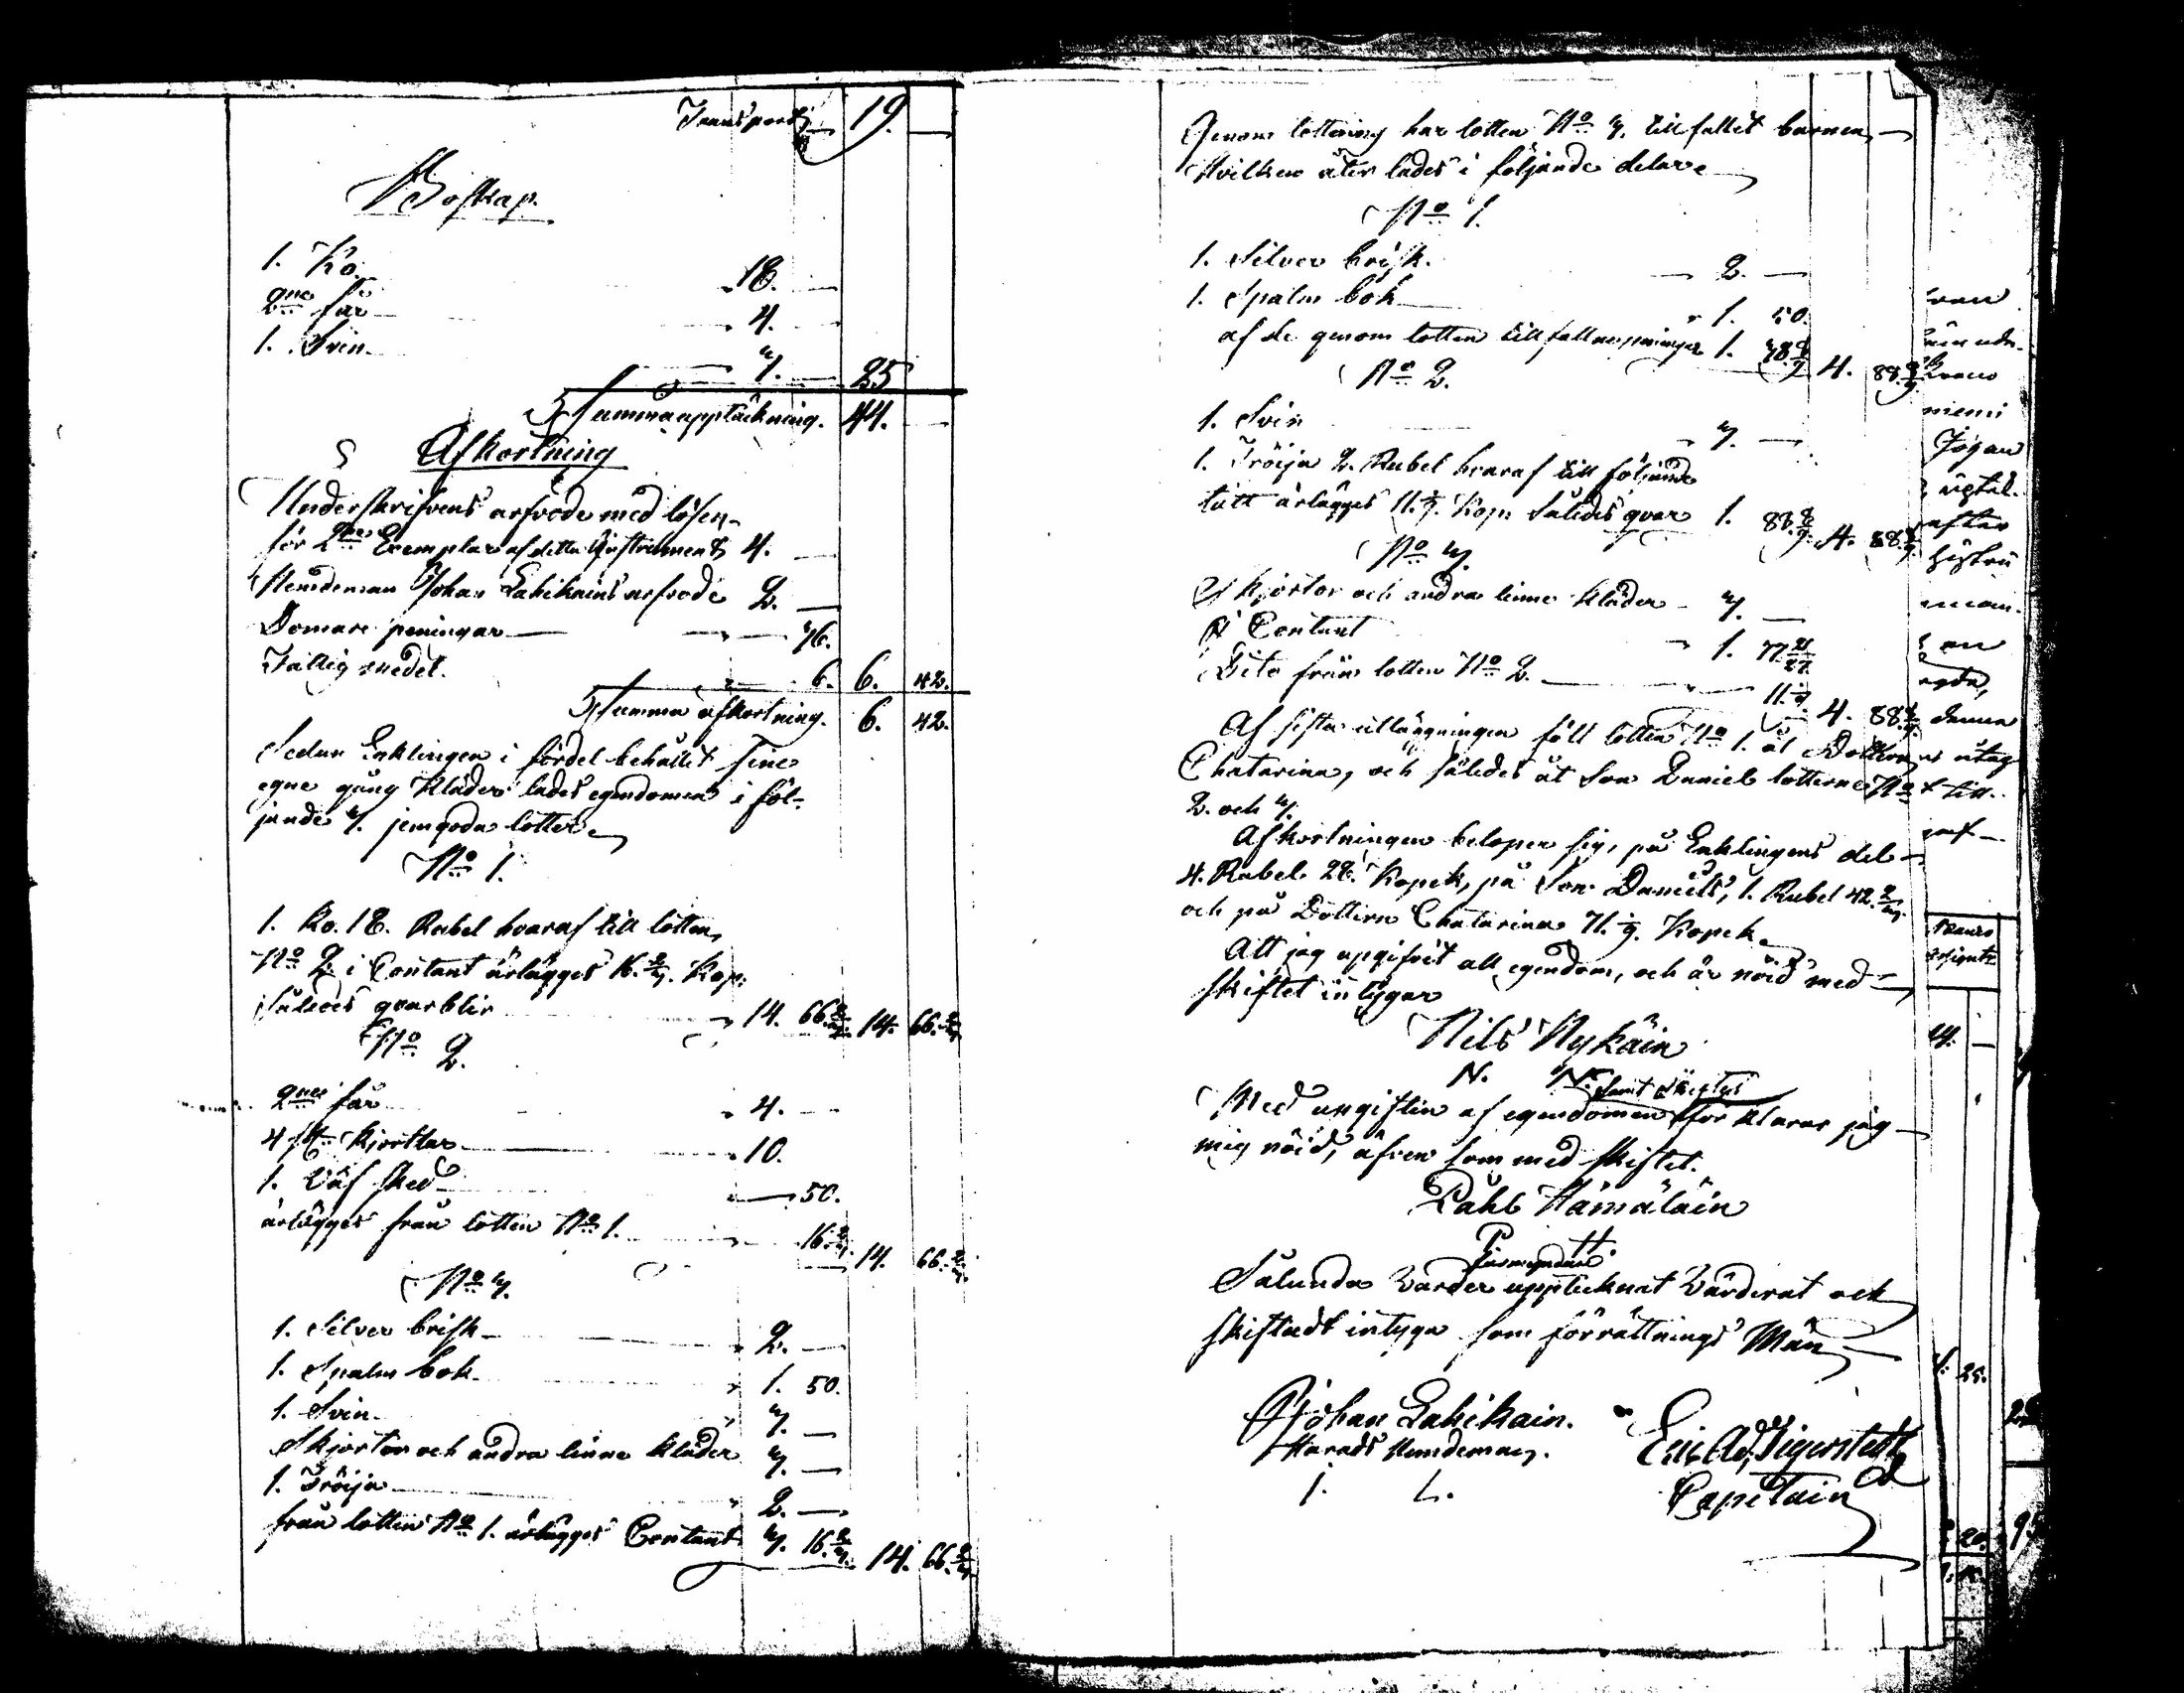 Transport 19. —
Boskap.
1. Ko. 18. —
2ne får 4. —
1. Svin 3. — 25
Summa upptäckning. 44. —
Afkortning
Underskrifvens arfvode med lösen
för 2ne Exemplar af detta Instrument 4. —
Nemdeman Johan Lahikains arfvode 2. —
Domare peningar — 36.
Fattig medel. — 6. 6. 42.
Summa afkortning. 6. 42.
Sedan Enklingen i fördel behållit sine
egne gång kläder lades egendomen i föl-
jande 3. jemgoda lotter
No 1.
1. Ko. 18. Rubel hvaraf till lotten
No 2. i Contant ärlägges 16. 2/3. Kop:
Således qvarblir 14. 66. 2/3. 14. 66. 2/3.
No 2.
2ne får 4. —
4 st. skjortlar 10.
1. Väf sked — 50.
ärlägges från lotten No 1. 16. 2/3. 14. 66. 2/3.
No 3.
1. Silver brisk 2. —
1. Spalm bok 1. 50.
1. Svin 3. —
Skjortor och andra linne kläder 3. —
1. Tröija 2. —
från lotten No 1. ärlägges Contant 3. 16. 2/3. 14. 66. 2/3.
Genom lottning har lotten No 3. till fallit barnen,
Hvilken åter lades i följande delar
No 1.
1. Silver brisk. 2. —
1. Spalm bok 1. 50.
af de genom lotten till fallne peningar 1. 38. 8/9. 4. 88. 8/9.
No 2.
1. Svin 3. —
1. Tröija 2. Rubel hvaraf till följande
lått ärlägges 11. 1/9. Kop: Således qvar 1. 88. 8/9. 4. 88. 8/9.
No 3.
Skjortor och andra linne kläder 3. —
Contant 1. 77.
Dito från lotten No 2. 11. 1/9. 4. 88. 8/9.
Af sista utläggningen föll lotten No 1. åt Dottren
Chatarina, och således åt Son Daniel lotterne No
2. och 3.
Afkortningen beloper sig, på Enklingens del
4. Rubel 28. Kopek, på Son Daniels, 1. Rubel 42. 2/9.
och på Dottren Chatarina 71. 1/9. Kopek.
Att jag upgifvit all egendom, och är nöid med
skiftet intygar
Nils Nykäin
N. N.
samt skiftes
Med upgiften af egendomen för klarar jag
mig nöid, äfven som med skiftet.
Påhl Hämäläin
P H.
förmyndare
Sålunda varder upptecknat Värderat och
skiftadt intyga som förrättnings Män
Johan Lahikain. Eric Ad. Tigerstedt
Härads Nemdeman. Capitain
I. L.